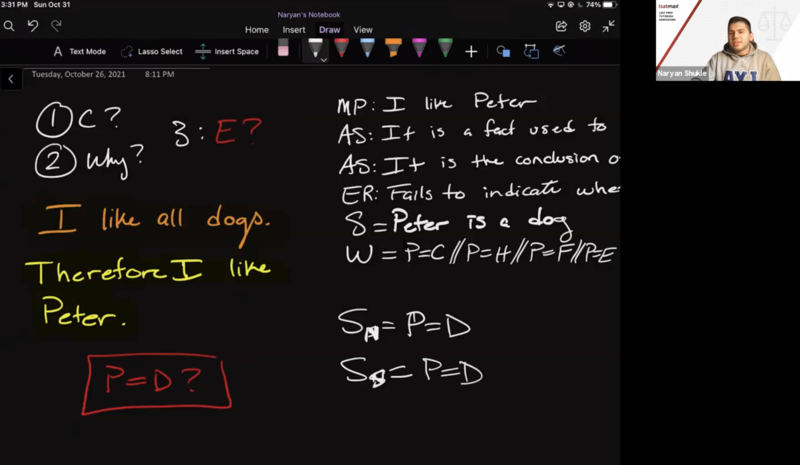 3:31 PM Sun Oct 31
Naryan's Notebook
74%
Home Insert Draw View
A Text Mode Lasso Select Insert Space
Tuesday, October 26, 2021 8:11 PM
1 C?
2 Why?
3: E?
I like all dogs.
Therefore I like
Peter.
P=D?
MP: I like Peter
AS: It is a fact used to
AS: It is the conclusion o
ER: Fails to indicate whe
S = Peter is a dog
W = P=C // P=H // P=F // P=E
S = P=D
S = P=D
lsatmax
LSAT PREP
TUTORING
ADMISSIONS
Naryan Shukle